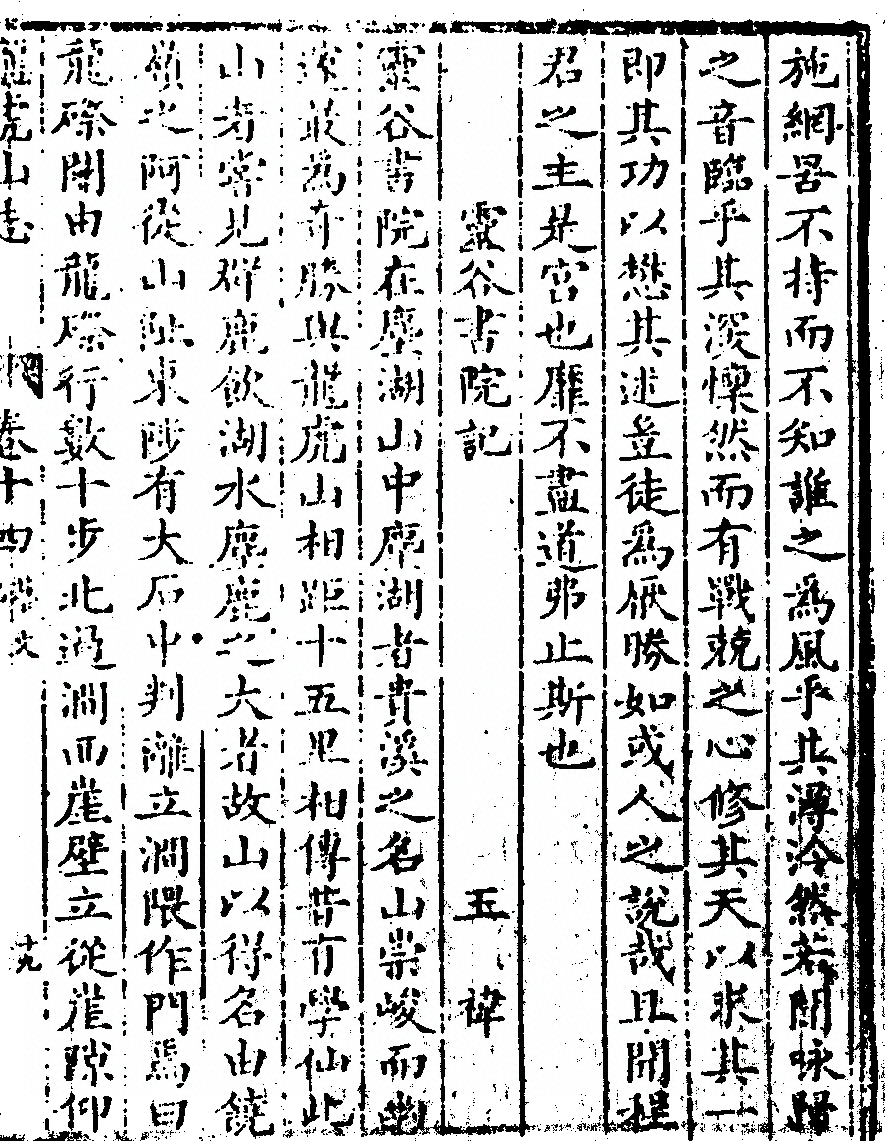 施網罟不持而不知誰之為風乎其潯泠然若聞咏歸
之音臨乎其深懍然而有戰兢之心修其天以求其一
即其功以懋其述豈徒為厭勝如或人之說哉且聞程
君之主是宮也靡不盡道那止斯也
靈谷書院記 王 禕
靈谷書院在塵湖山中塵湖者貴溪之名山崇峻而幽
邃最為奇勝與龍虎山相距十五里相傳昔有學仙此
山者嘗見群鹿飲湖水塵鹿之大者故山以得名由饒
嶺之阿從山趾東陟有大石中判離立澗隈作門焉曰
龍磜關由龍磜行數十步北過澗西崖壁立從崖隙仰
龍虎山志 卷十四 藝文 十九